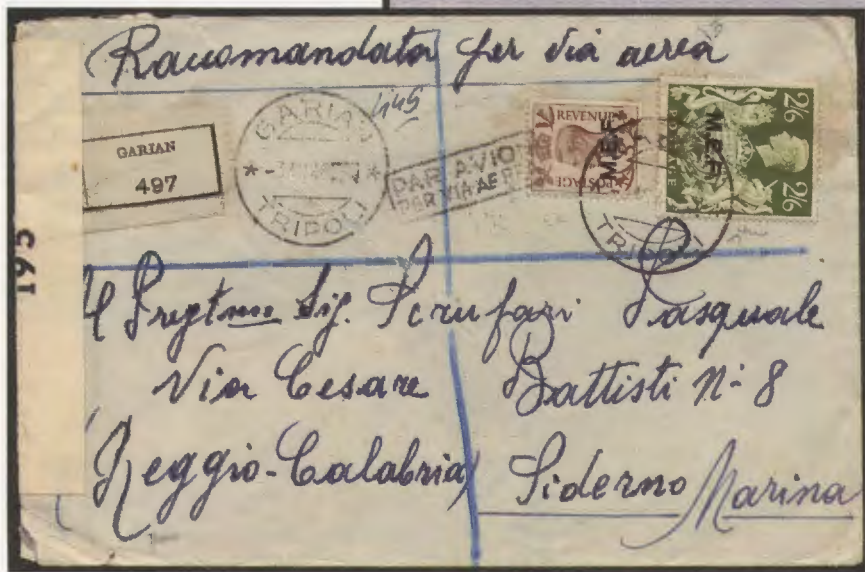 Raccomandata per via aerea
445
GARIAN
497
GARIAN
TRIPOLI
PAR AVION
PER VIA AEREA
REVENUE
POSTAGE
M.E.F.
2/6
POSTAGE
M.E.F.
2/6
TRIPOLI
195
Al Pregtmo Sig. Scrufari Pasquale
Via Cesare Battisti N- 8
(Reggio-Calabria) Siderno Marina